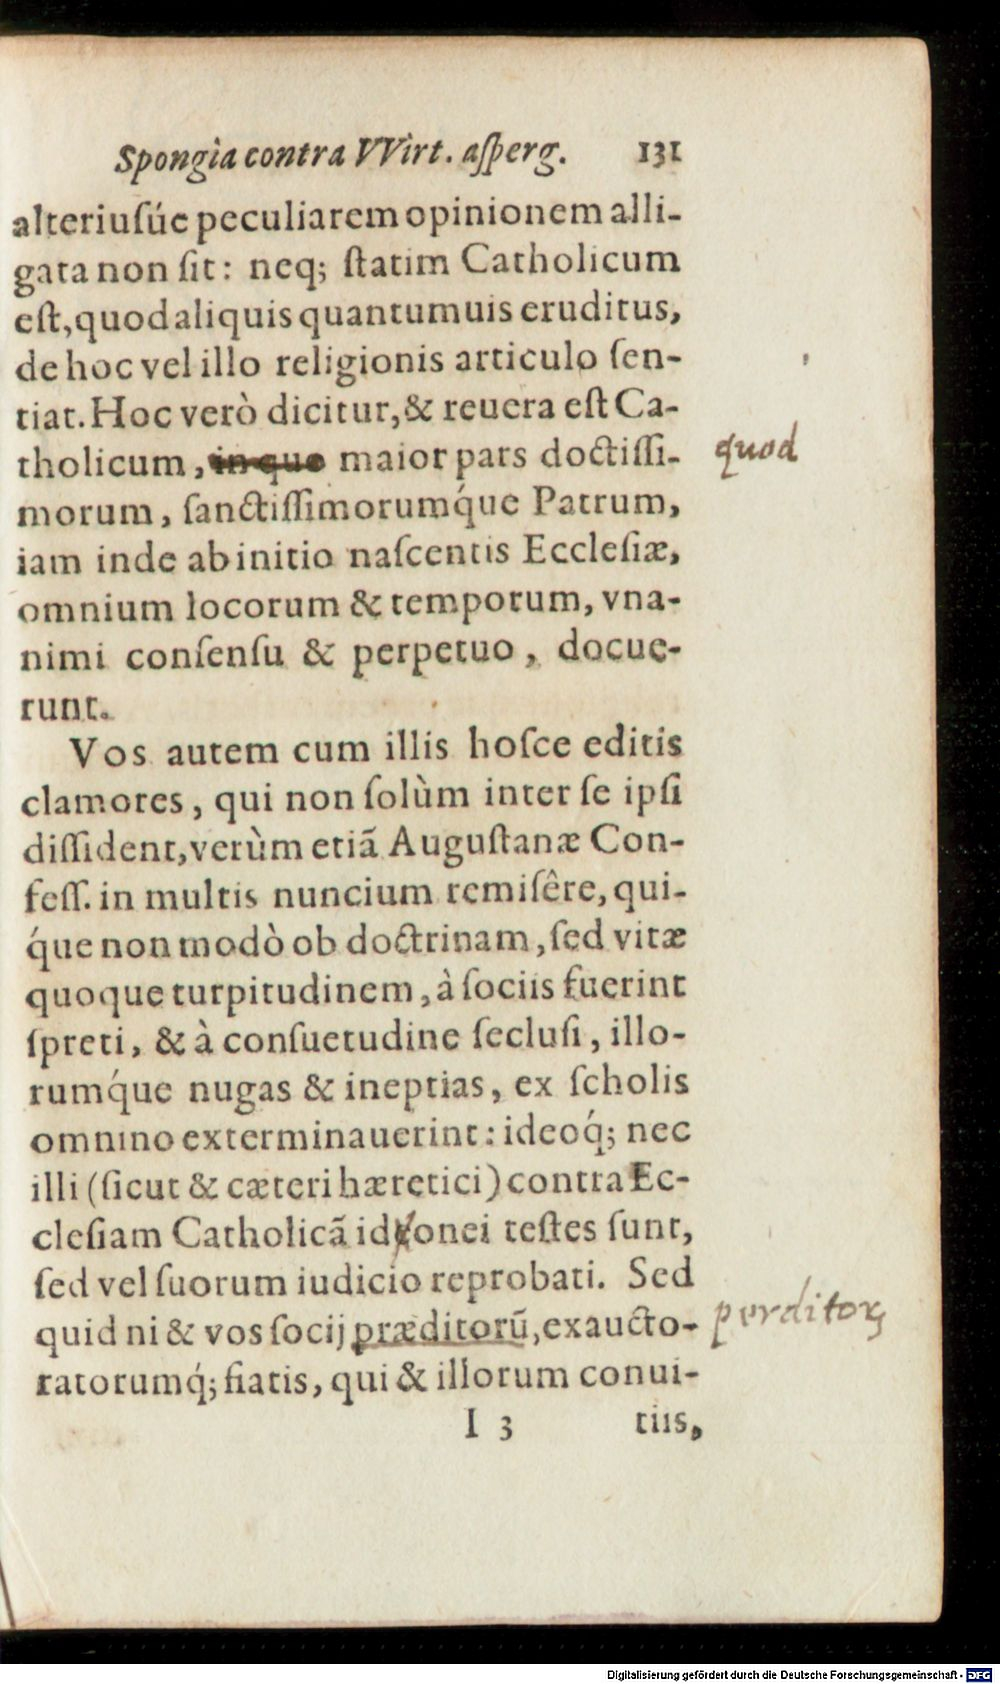 Spongia contra VVirt. aſperg. 131
alteriuſúe peculiarem opinionem alli-
gata non ſit: neq; ſtatim Catholicum
eſt, quod aliquis quantumuis eruditus,
de hoc vel illo religionis articulo ſen-
tiat. Hoc verò dicitur, & reuera eſt Ca-
tholicum, in quo maior pars doctiſſi- quod
morum, ſanctiſſimorumq́ue Patrum,
iam inde ab initio naſcentis Eccleſiæ,
omnium locorum & temporum, vna-
nimi conſenſu & perpetuo, docue-
runt.
Vos autem cum illis hoſce editis
clamores, qui non ſolùm inter ſe ipſi
diſſident, verùm etiã Auguſtanæ Con-
feſſ. in multis nuncium remiſêre, qui-
q́ue non modò ob doctrinam, ſed vitæ
quoque turpitudinem, à ſociis fuerint
ſpreti, & à conſuetudine ſecluſi, illo-
rumq́ue nugas & ineptias, ex ſcholis
omnino exterminauerint: ideoq́; nec
illi (ſicut & cæteri hæretici) contra Ec-
cleſiam Catholicã idonei teſtes ſunt,
ſed vel ſuorum iudicio reprobati. Sed
quid ni & vos ſocij præditorũ, exaucto- perditorꝝ
ratorumq́; fiatis, qui & illorum conui-
I 3 tiis,
Digitalisierung gefördert durch die Deutsche Forschungsgemeinschaft - DFG